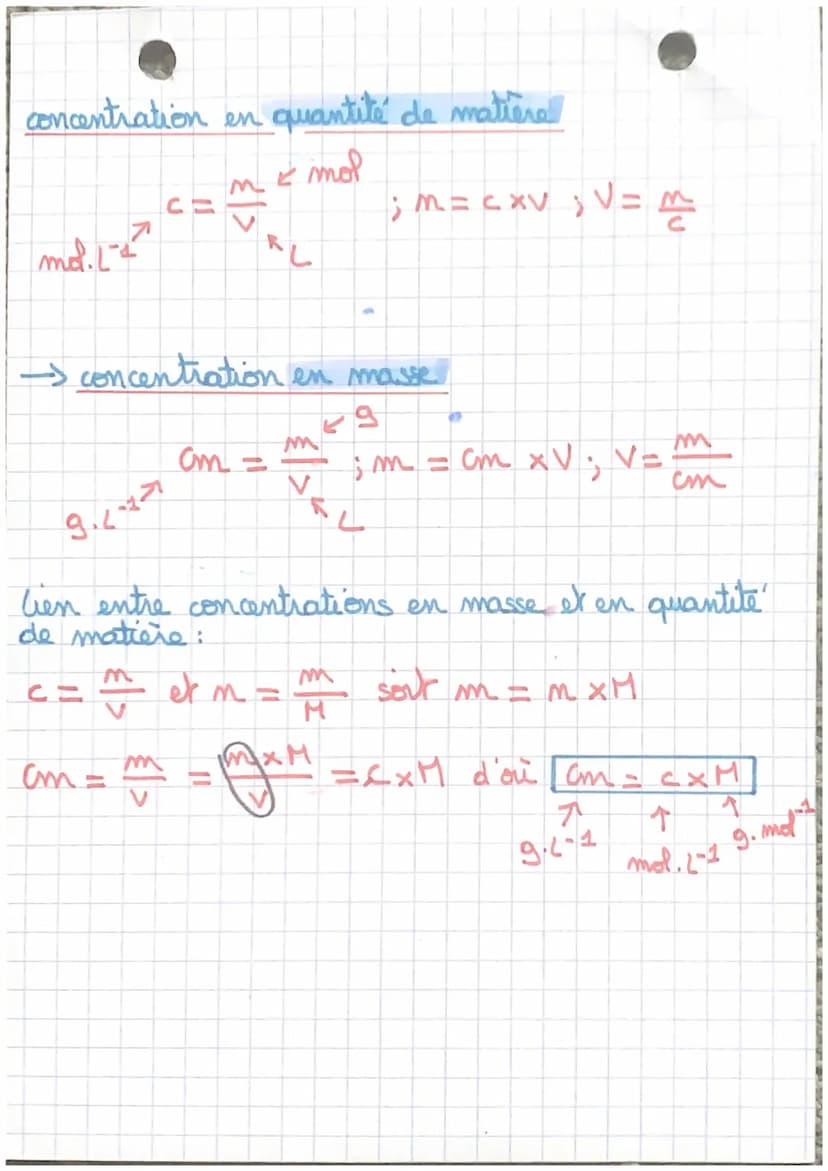 concentration en quantité de matière
c = n/V ← mol ; n = c x V ; V = n/c
mol.L⁻¹ ↗ ↖ L
→ concentration en masse
cm = m/V ↙ g ; m = cm x V ; V = m/cm
g.L⁻¹ ↗ ↖ L
lien entre concentrations en masse et en quantité
de matière :
c = n/V et n = m/M soit m = n x M
cm = m/V = n x M/V = c x M d'où cm = c x M
g.L⁻¹ mol.L⁻¹ g.mol⁻¹